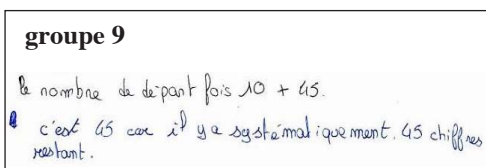 groupe 9
le nombre de départ fois 10 + 45.
c'est 45 car il y a systématiquement. 45 chiffres
restant.